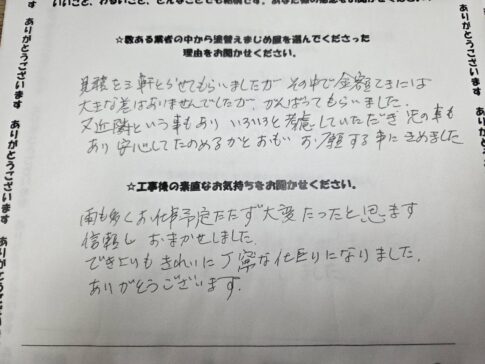 いいこと、わるいこと、どんなことでも結構です。あなた様の感想をお聞かせください。
☆数ある業者の中から塗替えまじめ屋を選んでくださった
理由をお聞かせください。
見積を三軒とらせてもらいましたが その中で金額てきには
大きな差はありませんでしたが、がんばってもらいました。
又近隣という事もあり いろいろと考慮していただき 次の事も
あり 安心してたのめるかとおもい お願する事にきめました
☆工事後の素直なお気持ちをお聞かせください。
雨も多くお仕事予定たたず大変だったと思ます
信頼し おまかせしました。
でき上りも きれいに丁寧な仕上りになりました。
ありがとうございます。
ありがとうございます ありがとうございます
ありがとうございます ありがとうございます